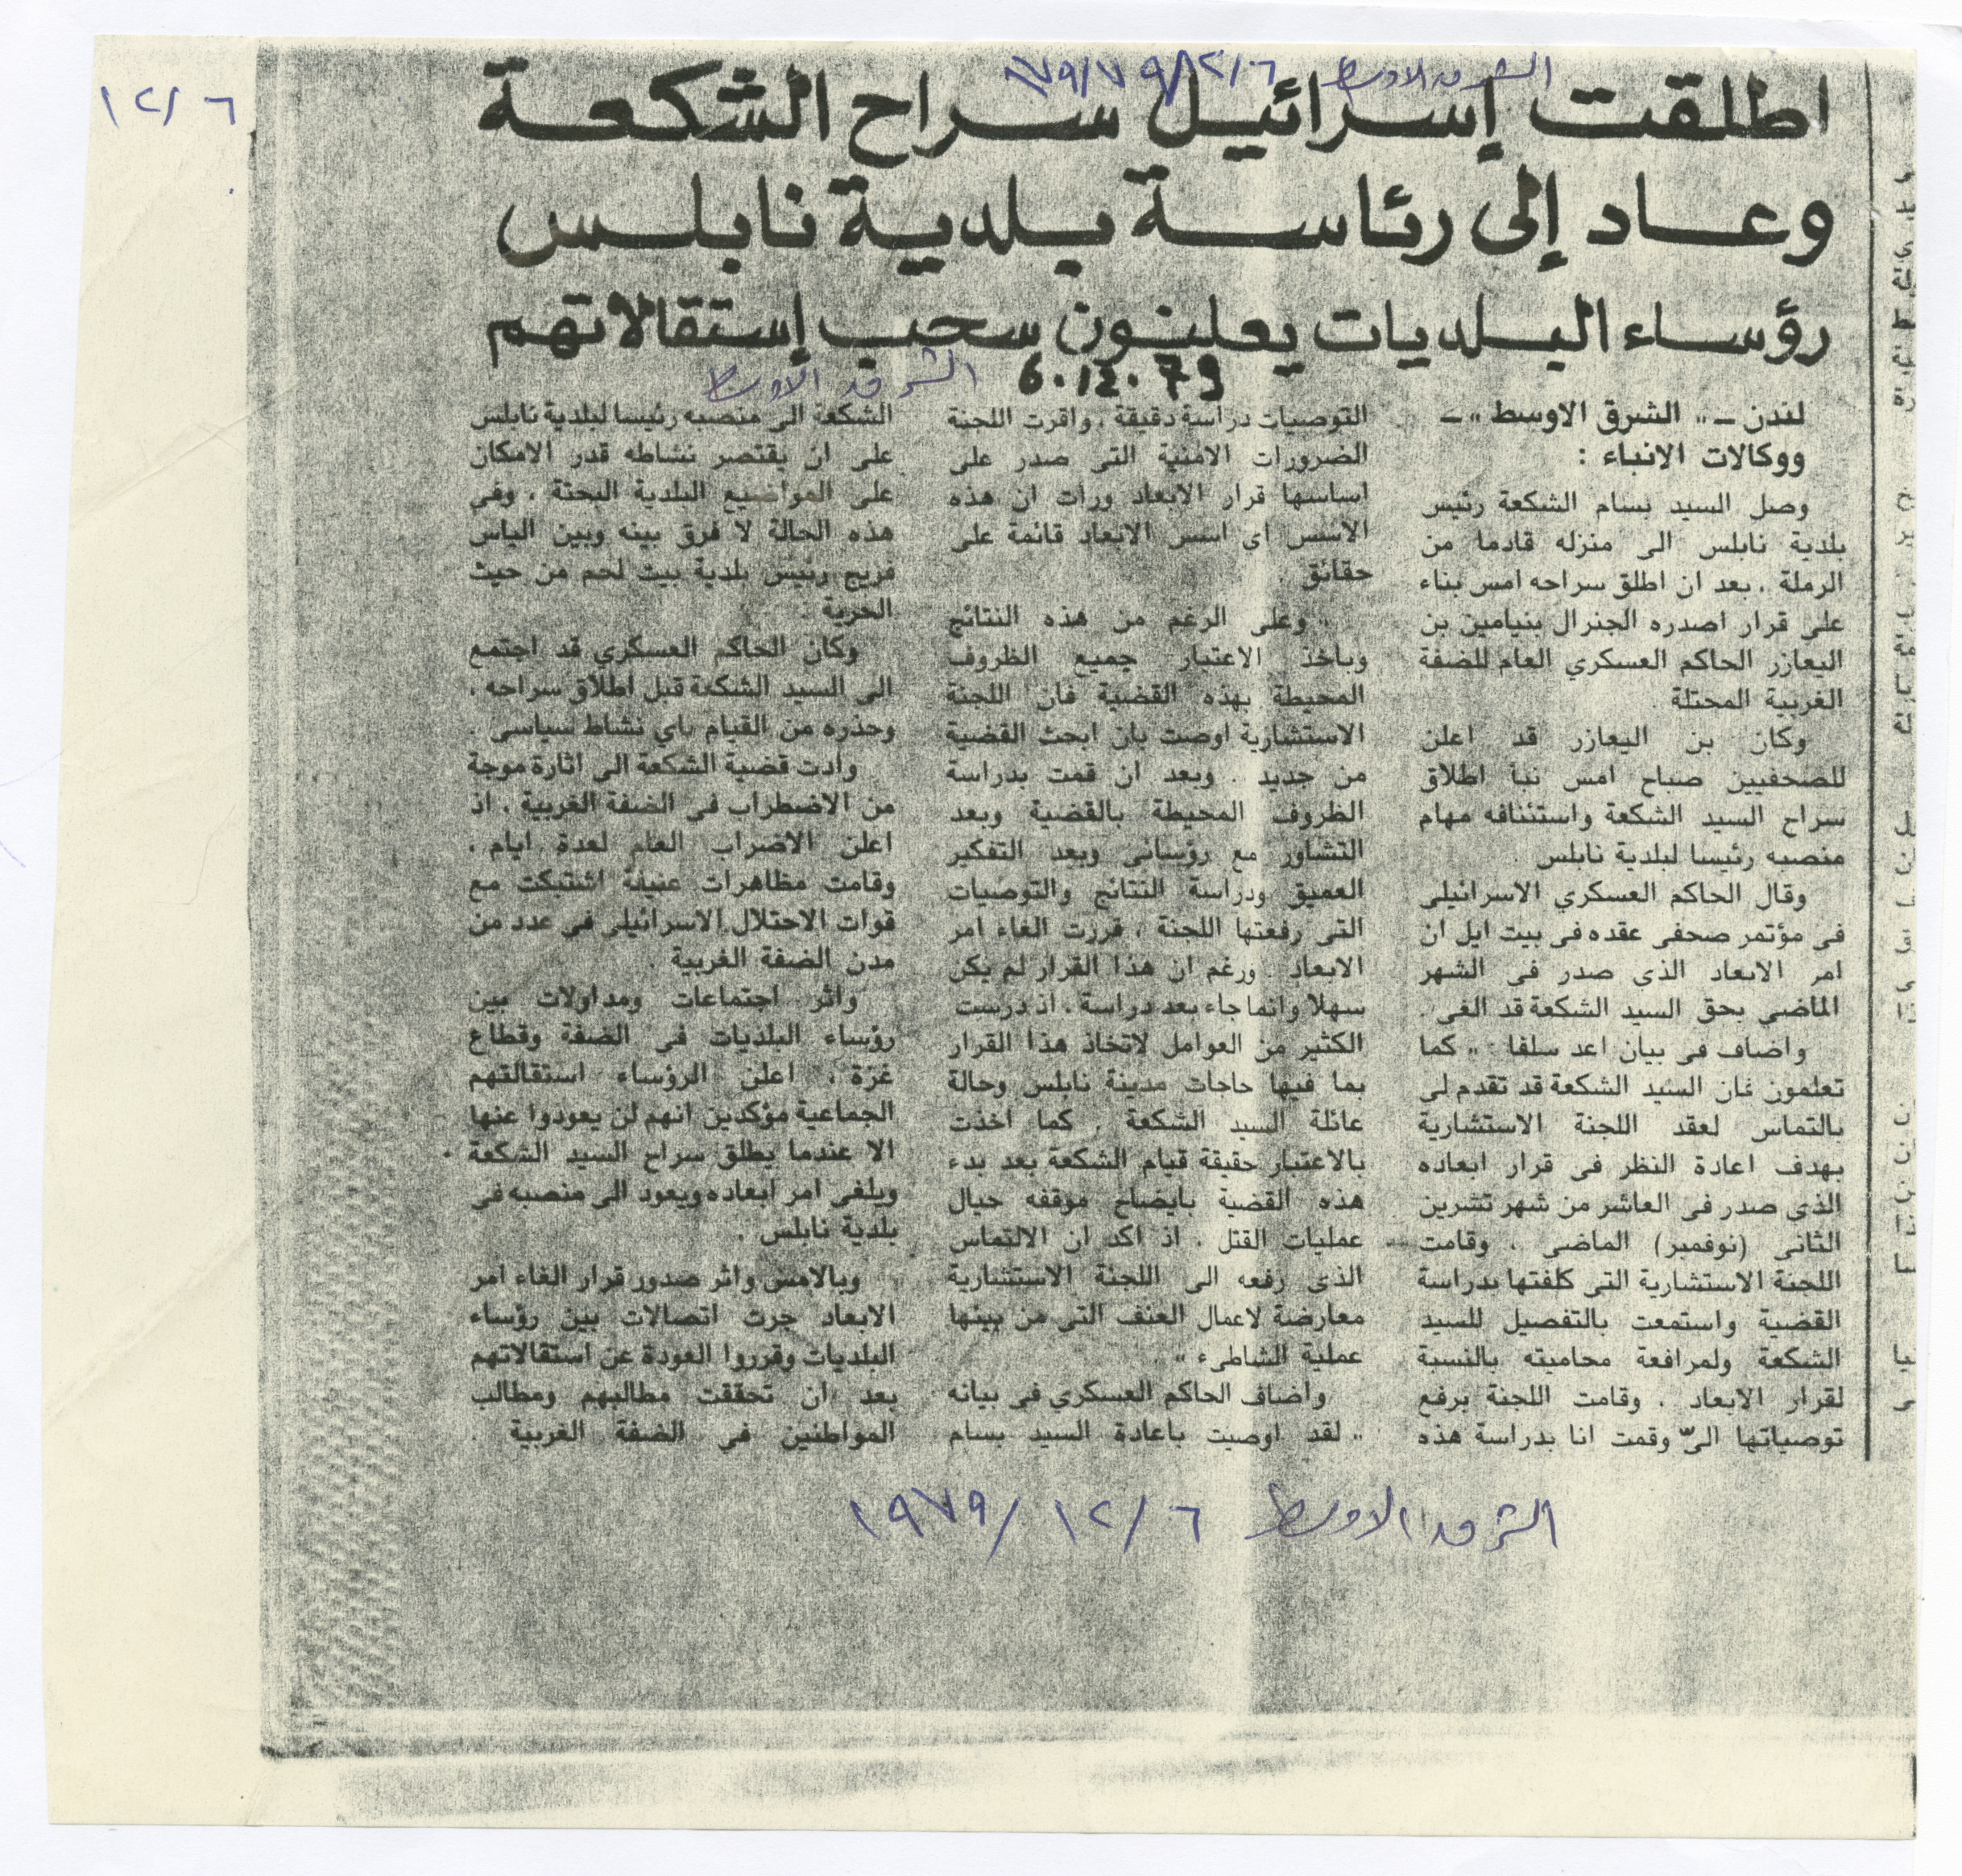 الشرق الاوسط ٦/١٢/٧٩
١٢/٦
اطلقت إسرائيل سراح الشكعة
وعاد إلى رئاسة بلدية نابلس
رؤساء البلديات يعلنون سحب إستقالاتهم
6.12.79 الشرق الاوسط
لندن ــ « الشرق الاوسط » ــ
ووكالات الانباء :
وصل السيد بسام الشكعة رئيس
بلدية نابلس الى منزله قادما من
الرملة ، بعد ان اطلق سراحه امس بناء
على قرار اصدره الجنرال بنيامين بن
اليعازر الحاكم العسكري العام للضفة
الغربية المحتلة .
وكان بن اليعازر قد اعلن
للصحفيين صباح امس نبأ اطلاق
سراح السيد الشكعة واستئنافه مهام
منصبه رئيسا لبلدية نابلس .
وقال الحاكم العسكري الاسرائيلى
فى مؤتمر صحفى عقده فى بيت ايل ان
امر الابعاد الذى صدر فى الشهر
الماضى بحق السيد الشكعة قد الغى .
واضاف فى بيان اعد سلفا : « كما
تعلمون فان السيد الشكعة قد تقدم لى
بالتماس لعقد اللجنة الاستشارية
بهدف اعادة النظر فى قرار ابعاده
الذى صدر فى العاشر من شهر تشرين
الثانى (نوفمبر) الماضى ، وقامت
اللجنة الاستشارية التى كلفتها بدراسة
القضية واستمعت بالتفصيل للسيد
الشكعة ولمرافعة محاميته بالنسبة
لقرار الابعاد ، وقامت اللجنة برفع
توصياتها الىّ وقمت انا بدراسة هذه
التوصيات دراسة دقيقة ، واقرت اللجنة
الضرورات الامنية التى صدر على
اساسها قرار الابعاد ورأت ان هذه
الاسس اى اسس الابعاد قائمة على
حقائق .
« وعلى الرغم من هذه النتائج
وبأخذ الاعتبار جميع الظروف
المحيطة بهذه القضية فان اللجنة
الاستشارية اوصت بان ابحث القضية
من جديد . وبعد ان قمت بدراسة
الظروف المحيطة بالقضية وبعد
التشاور مع رؤسائى وبعد التفكير
العميق ودراسة النتائج والتوصيات
التى رفعتها اللجنة ، قررت الغاء امر
الابعاد . ورغم ان هذا القرار لم يكن
سهلا وانما جاء بعد دراسة ، اذ درست
الكثير من العوامل لاتخاذ هذا القرار
بما فيها حاجات مدينة نابلس وحالة
عائلة السيد الشكعة . كما اخذت
بالاعتبار حقيقة قيام الشكعة بعد بدء
هذه القضية بايضاح موقفه حيال
عمليات القتل ، اذ اكد ان الالتماس
الذى رفعه الى اللجنة الاستشارية
معارضة لاعمال العنف التى من بينها
عملية الشاطىء » .
واضاف الحاكم العسكري فى بيانه
« لقد اوصيت باعادة السيد بسام
الشكعة الى منصبه رئيسا لبلدية نابلس
على ان يقتصر نشاطه قدر الامكان
على المواضيع البلدية البحتة ، وفى
هذه الحالة لا فرق بينه وبين الياس
فريج رئيس بلدية بيت لحم من حيث
الحرية .
وكان الحاكم العسكري قد اجتمع
الى السيد الشكعة قبل اطلاق سراحه ،
وحذره من القيام باي نشاط سياسى .
وأدت قضية الشكعة الى اثارة موجة
من الاضطراب فى الضفة الغربية ، اذ
اعلن الاضراب العام لعدة ايام ،
وقامت مظاهرات عنيفة اشتبكت مع
قوات الاحتلال الاسرائيلى فى عدد من
مدن الضفة الغربية .
واثر اجتماعات ومداولات بين
رؤساء البلديات فى الضفة وقطاع
غزة ، اعلن الرؤساء استقالتهم
الجماعية مؤكدين انهم لن يعودوا عنها
الا عندما يطلق سراح السيد الشكعة
ويلغى امر ابعاده ويعود الى منصبه فى
بلدية نابلس .
وبالامس واثر صدور قرار الغاء امر
الابعاد جرت اتصالات بين رؤساء
البلديات وقرروا العودة عن استقالاتهم
بعد ان تحققت مطالبهم ومطالب
المواطنين فى الضفة الغربية .
الشرق الاوسط ٦/١٢/١٩٧٩